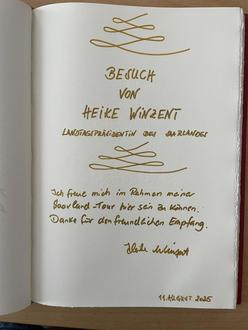 BESUCH
VON
HEIKE WINZENT
LANDTAGSPRÄSIDENTIN DES SAARLANDES
Ich freue mich im Rahmen meiner
Saarland-Tour hier sein zu können.
Danke für den freundlichen Empfang.
11. AUGUST 2025